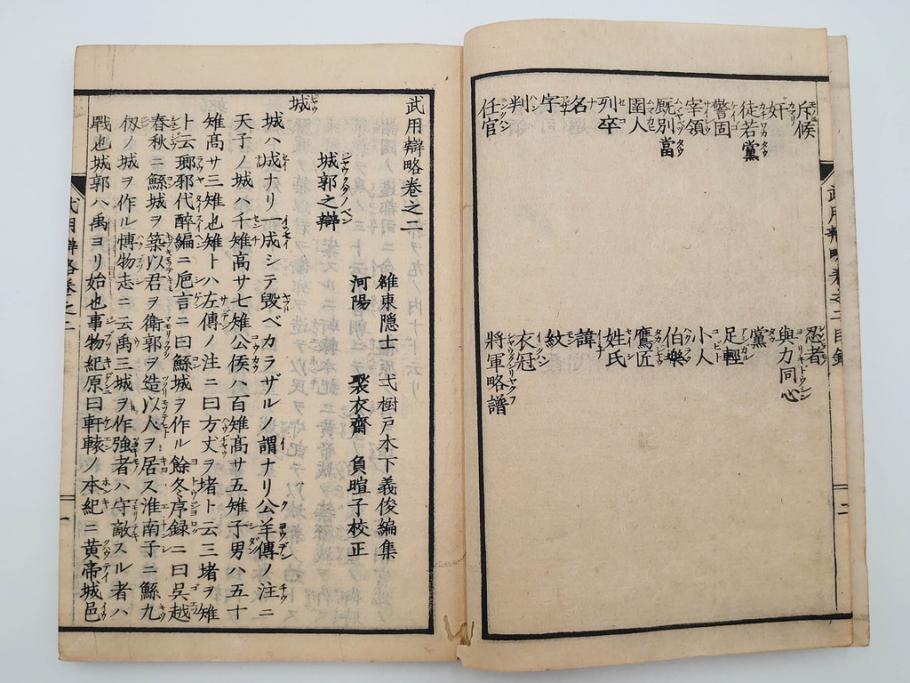 武用辨略卷之二目録
二
斥候
奸
徒若黨
警固
宰領
厩別當
圉人
列卒
名
字
判
任官
忍者
與力同心
黨
足輕
小人
伯樂
鷹匠
姓氏
諱
紋
衣冠
將軍略譜
武用辯略卷之二
雒東隱士 弌樹戸木下義俊編集
河陽 褧衣齋 負暄子校正
城郭之辯
城
城ハ成ナリ一成シテ毀ベカラザルノ謂ナリ公羊傳ノ注ニ
天子ノ城ハ千雉髙サ七雉公侯ハ百雉髙サ五雉子男ハ五十
雉髙サ三雉也雉トハ左傳ノ注ニ曰方丈ヲ堵ト云三堵ヲ雉
ト云瑯邪代醉編ニ巵言ニ曰鯀城ヲ作ル餘冬序録ニ曰吴越
春秋ニ鯀城ヲ築以君ヲ衛郭ヲ造以人ヲ居ス淮南子ニ鯀九
仭ノ城ヲ作ル博物志ニ云禹三城ヲ作強者ハ守敵スル者ハ
戰也城郭ハ禹ヨリ始也事物紀原曰軒轅ノ本紀ニ黄帝城邑
武用辯略卷之二
一